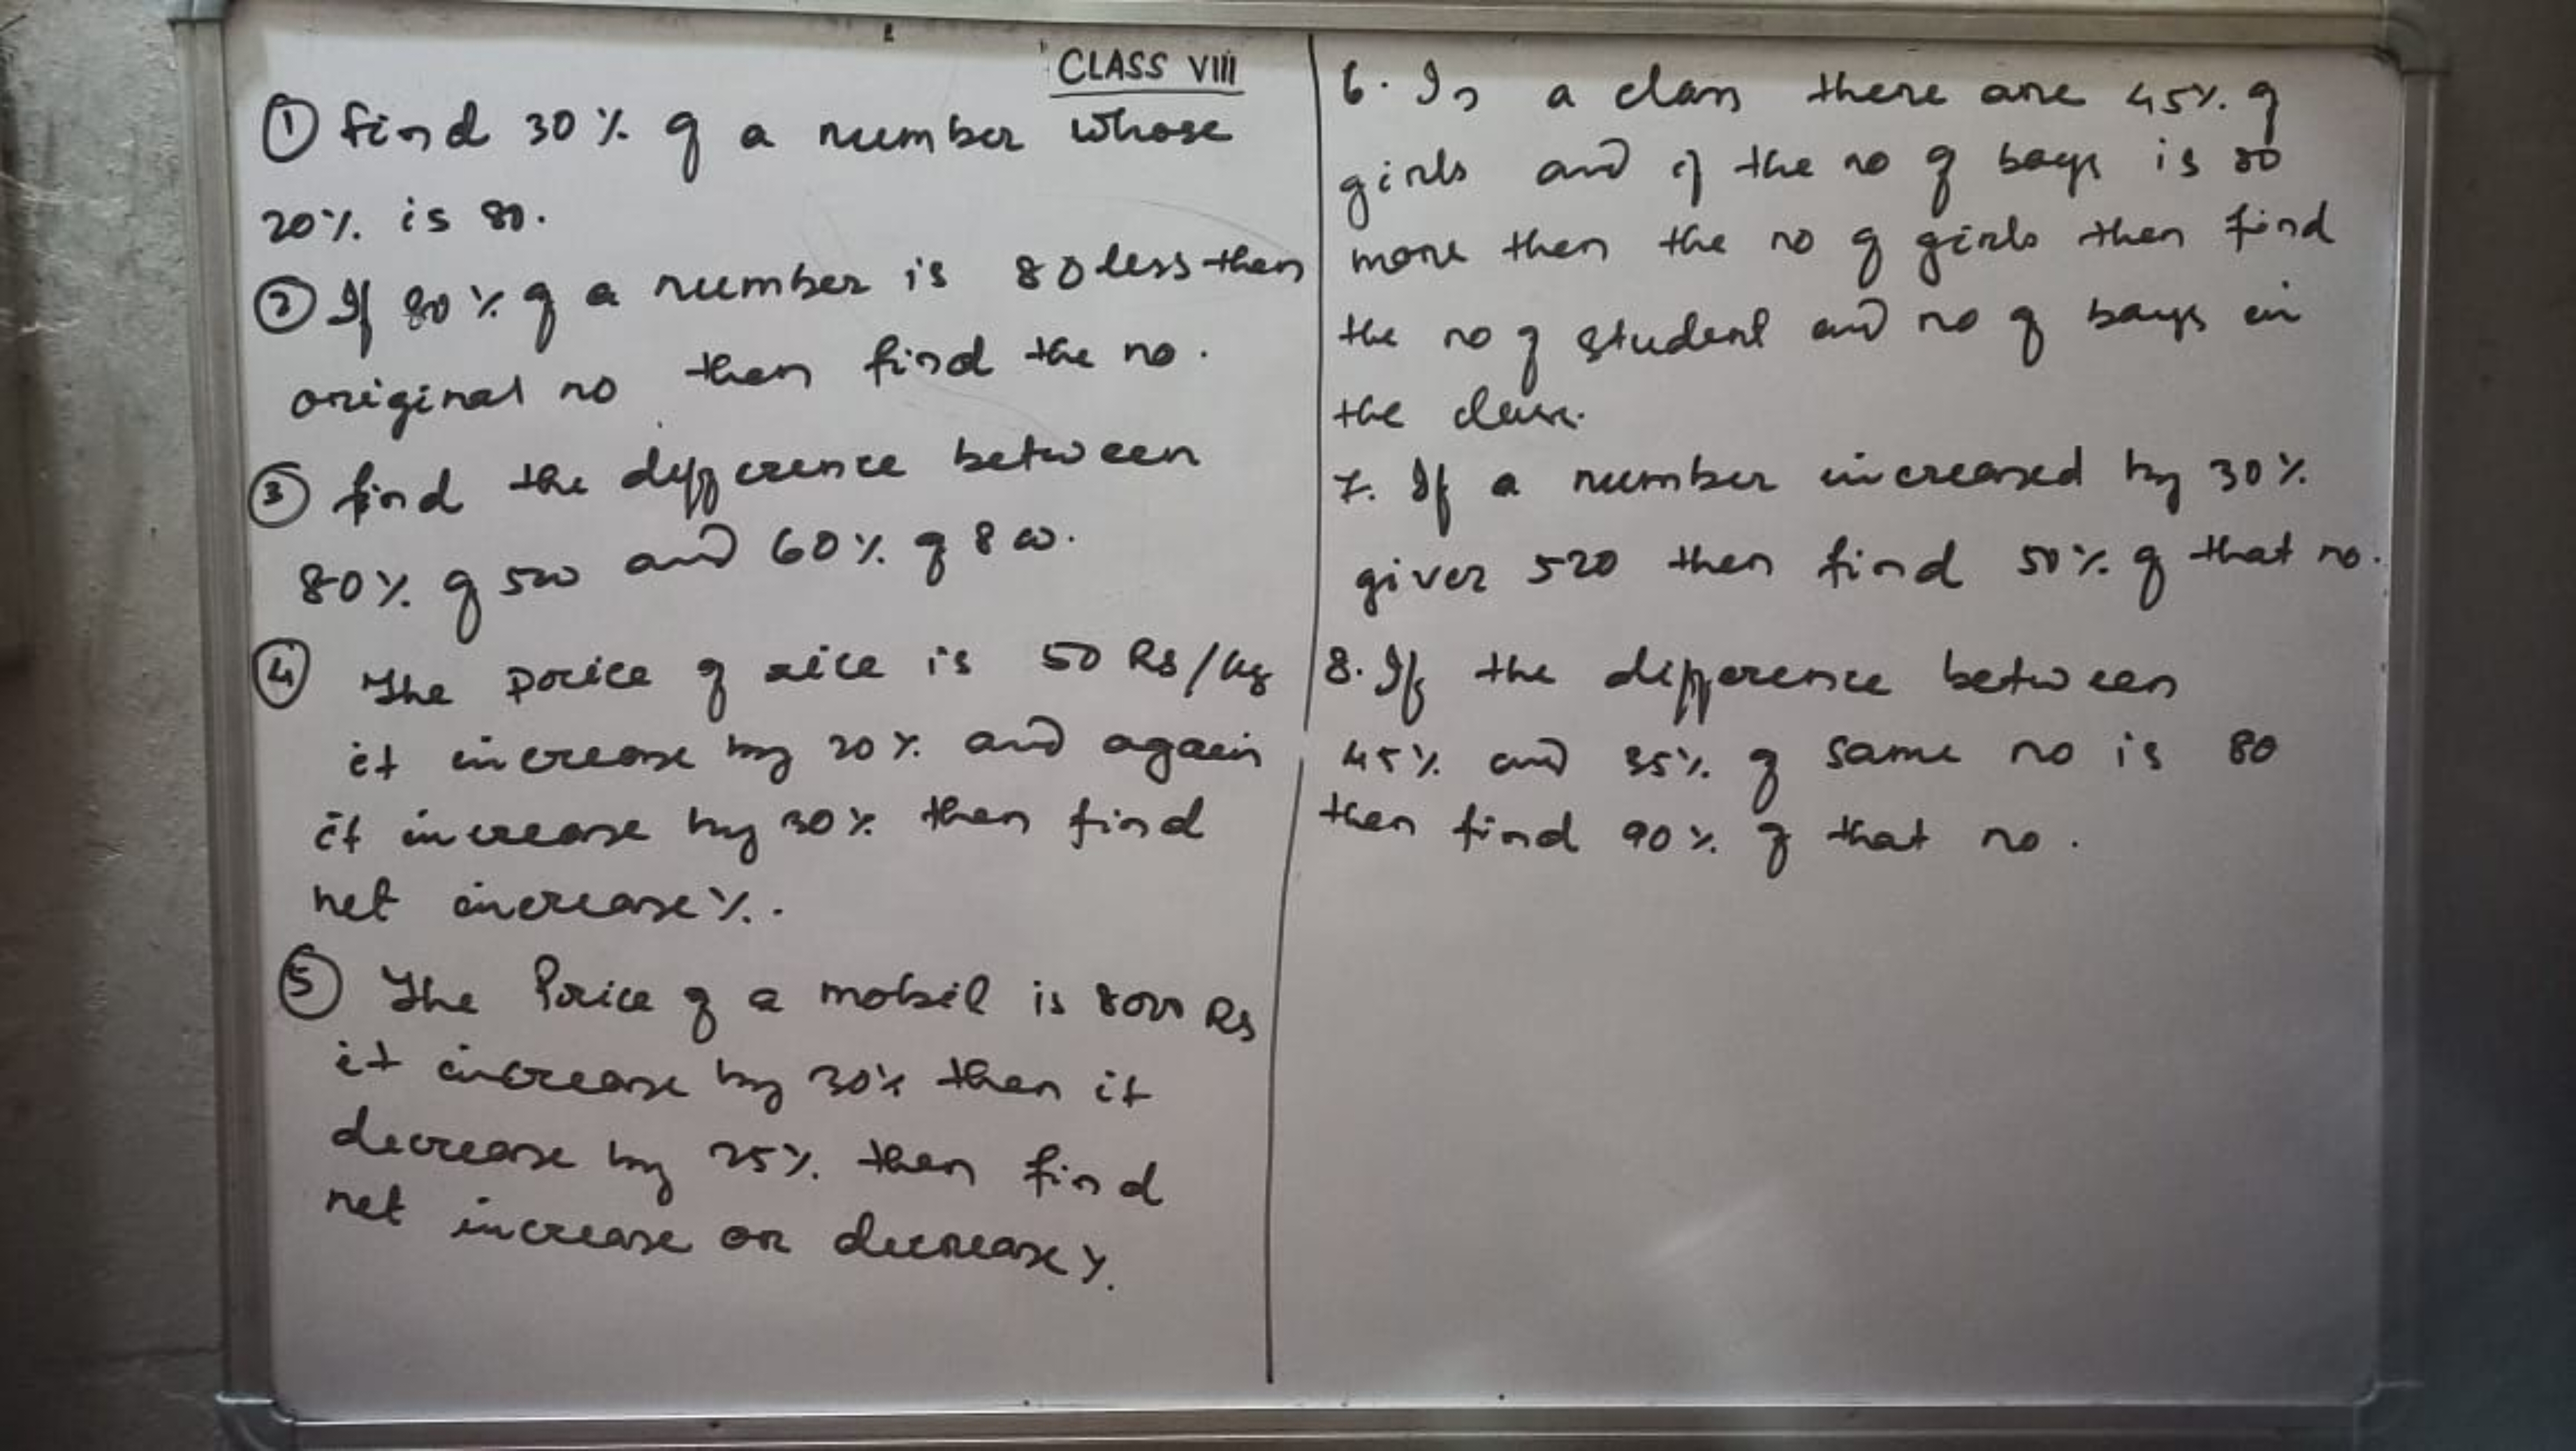 CLASS VIII
① find 30% of a number whose
20% is 80.
② If 80% of a number is 80 less then
original no then find the no.
③ find the difference between
80% of 500 and 60% of 800.
④ The price of rice is 50 Rs/kg
it increase by 20% and again
it increase by 30% then find
net increase%.
⑤ The Price of a mobil is 8000 Rs
it increase by 30% then it
decrease by 25% then find
net increase or decrease%.
6. In a class there are 45% of
girls and if the no of boys is 80
more then the no of girls then find
the no of student and no of boys in
the class.
7. If a number increased by 30%
given 520 then find 50% of that no.
8. If the difference between
45% and 35% of same no is 80
then find 90% of that no.